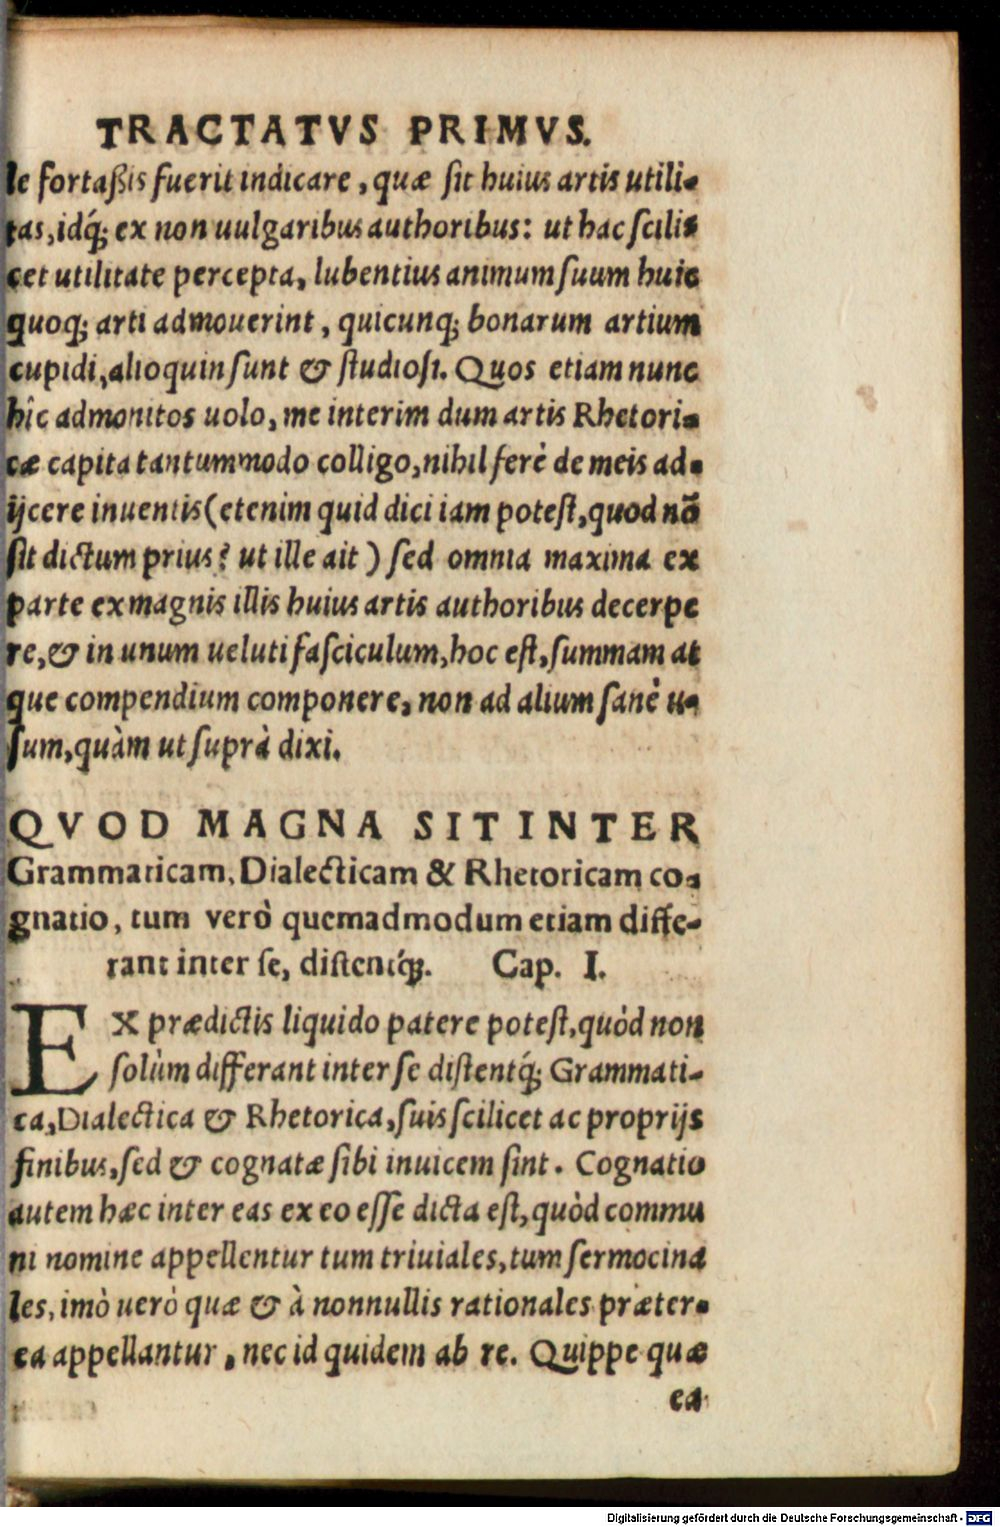 TRACTATVS PRIMVS.
le fortaßis fuerit indicare, quæ sit huius artis utili-
tas, idq́; ex non uulgaribus authoribus: ut hac scili-
cet utilitate percepta, lubentius animum suum huic
quoq; arti admouerint, quicunq; bonarum artium
cupidi, alioquin sunt & studiosi. Quos etiam nunc
hîc admonitos uolo, me interim dum artis Rhetori-
cæ capita tantummodo colligo, nihil ferè de meis ad-
ijcere inuentis (etenim quid dici iam potest, quod nō
sit dictum prius? ut ille ait) sed omnia maxima ex
parte ex magnis illis huius artis authoribus decerpe
re, & in unum ueluti fasciculum, hoc est, summam at
que compendium componere, non ad alium sanè u-
sum, quàm ut suprà dixi.
QVOD MAGNA SIT INTER
Grammaticam, Dialecticam & Rhetoricam co-
gnatio, tum verò quemadmodum etiam diffe-
rant inter se, distentq́;. Cap. I.
EX prædictis liquido patere potest, quòd non
solùm differant inter se distentq́; Grammati-
ca, Dialectica & Rhetorica, suis scilicet ac proprijs
finibus, sed & cognatæ sibi inuicem sint. Cognatio
autem hæc inter eas ex eo esse dicta est, quòd commu
ni nomine appellentur tum triuiales, tum sermocina
les, imò uerò quæ & à nonnullis rationales præter-
ea appellantur, nec id quidem ab re. Quippe quæ
ea
Digitalisierung gefördert durch die Deutsche Forschungsgemeinschaft - DFG